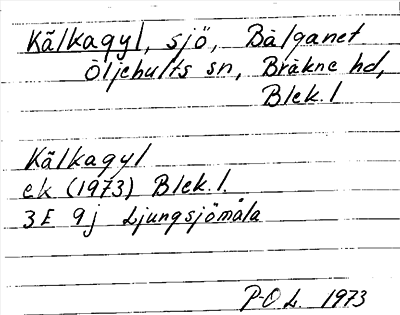 Kälkagyl, sjö, Bälganet
Öljehults sn, Bräkne hd,
Blek. l
Kälkagyl
ek (1973) Blek. l.
3E 9j Ljungsjömåla
P-O L. 1973